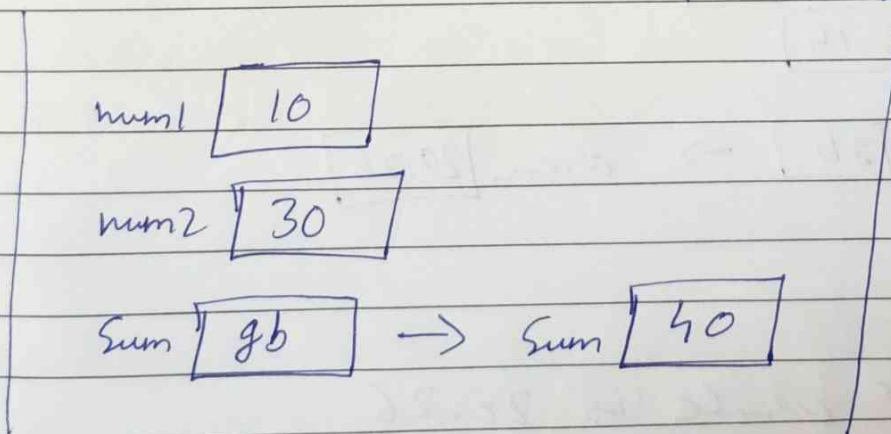 num1 10
num2 30
Sum gb → Sum 40